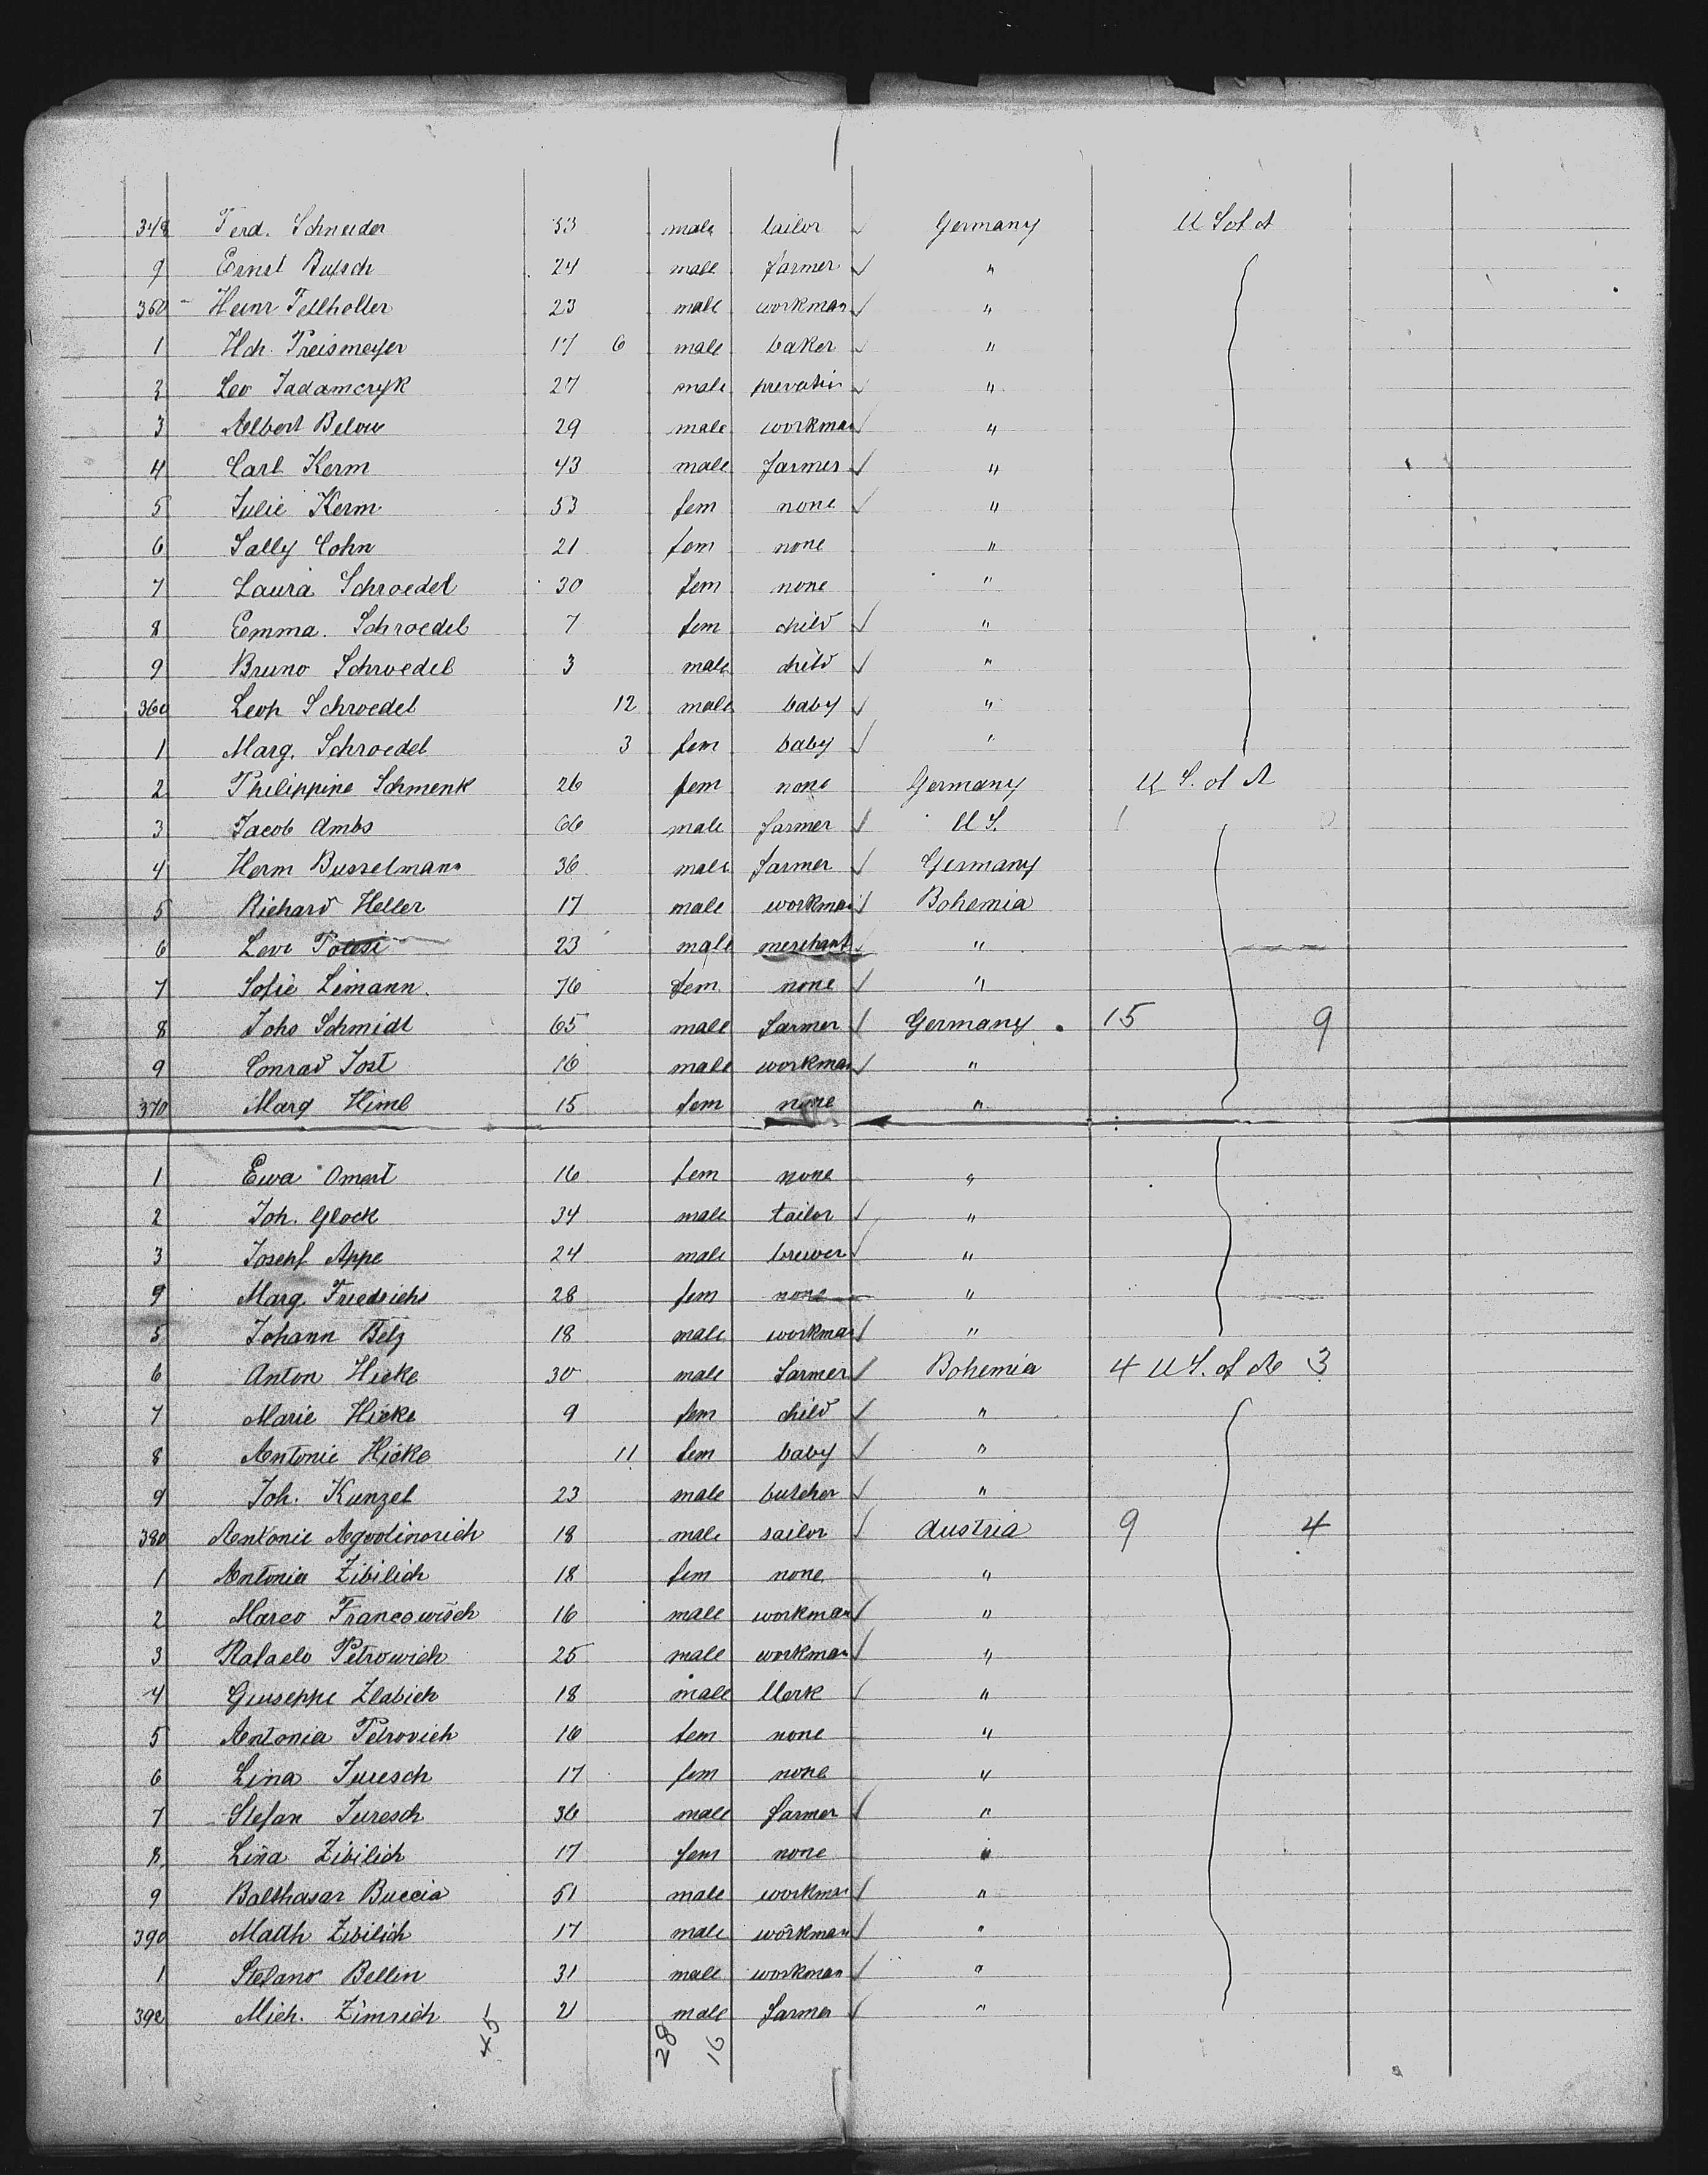 348 Ferd. Schneider 33 male tailor Germany U S of A
9 Ernst Butsch 24 male farmer "
350 Heinr Fellhotter 23 male workman "
1 Hch. Preismeyer 17 6 male baker "
2 Leo Jadamcryk 27 male "
3 Albert Below 29 male workman "
4 Carl Kerm 43 male farmer "
5 Julie Kerm 53 fem none "
6 Sally Cohn 21 fem none "
7 Laura Schroedel 30 fem none "
8 Emma. Schroedel 7 fem child "
9 Bruno Schroedel 3 male child "
360 Leop Schroedel 12 male baby "
1 Marg. Schroedel 3 fem baby "
2 Philippine Schmenk 26 fem none Germany U S. of A
3 Jacob Ambs 66 male farmer U S.
4 Herm Busselmann 36 male farmer Germany
5 Richard Heller 17 male workman Bohemia
6 Levi 23 male merchant "
7 Sofie Limann 76 fem none "
8 Johs Schmidt 65 male farmer Germany 15 9
9 Conrad Jost 16 male workman "
370 Marg Himl 15 fem none "
1 Ewa Omert 16 fem none "
2 Joh. Glock 34 male tailor "
3 Josehf Appe 24 male brewer "
9 Marg. Friedrichs 28 fem none "
5 Johann Belz 18 male workman "
6 Anton Hicke 30 male farmer Bohemia 4 U S. of A 3
7 Marie Hicke 9 fem child "
8 Antonie Hicke 11 fem baby "
9 Joh. Kunzel 23 male butcher "
380 Antonie 18 male sailor Austria 9 4
1 Antonia Zibilich 18 fem none "
2 Marco Francowisch 16 male workman "
3 Rafaelo Petrowich 25 male workman "
4 Giuseppe Zlabich 18 male Clerk "
5 Antonia Petrovich 16 fem none "
6 Lina Juresch 17 fem none "
7 Stefan Juresch 36 male farmer "
8 Lina Zibilich 17 fem none "
9 Balthasar Buccia 51 male workman "
390 Matth Zibilich 17 male workman "
1 Stefano Bellin 31 male workman "
392 Mich. Zimrich 21 male farmer "
45 28 16